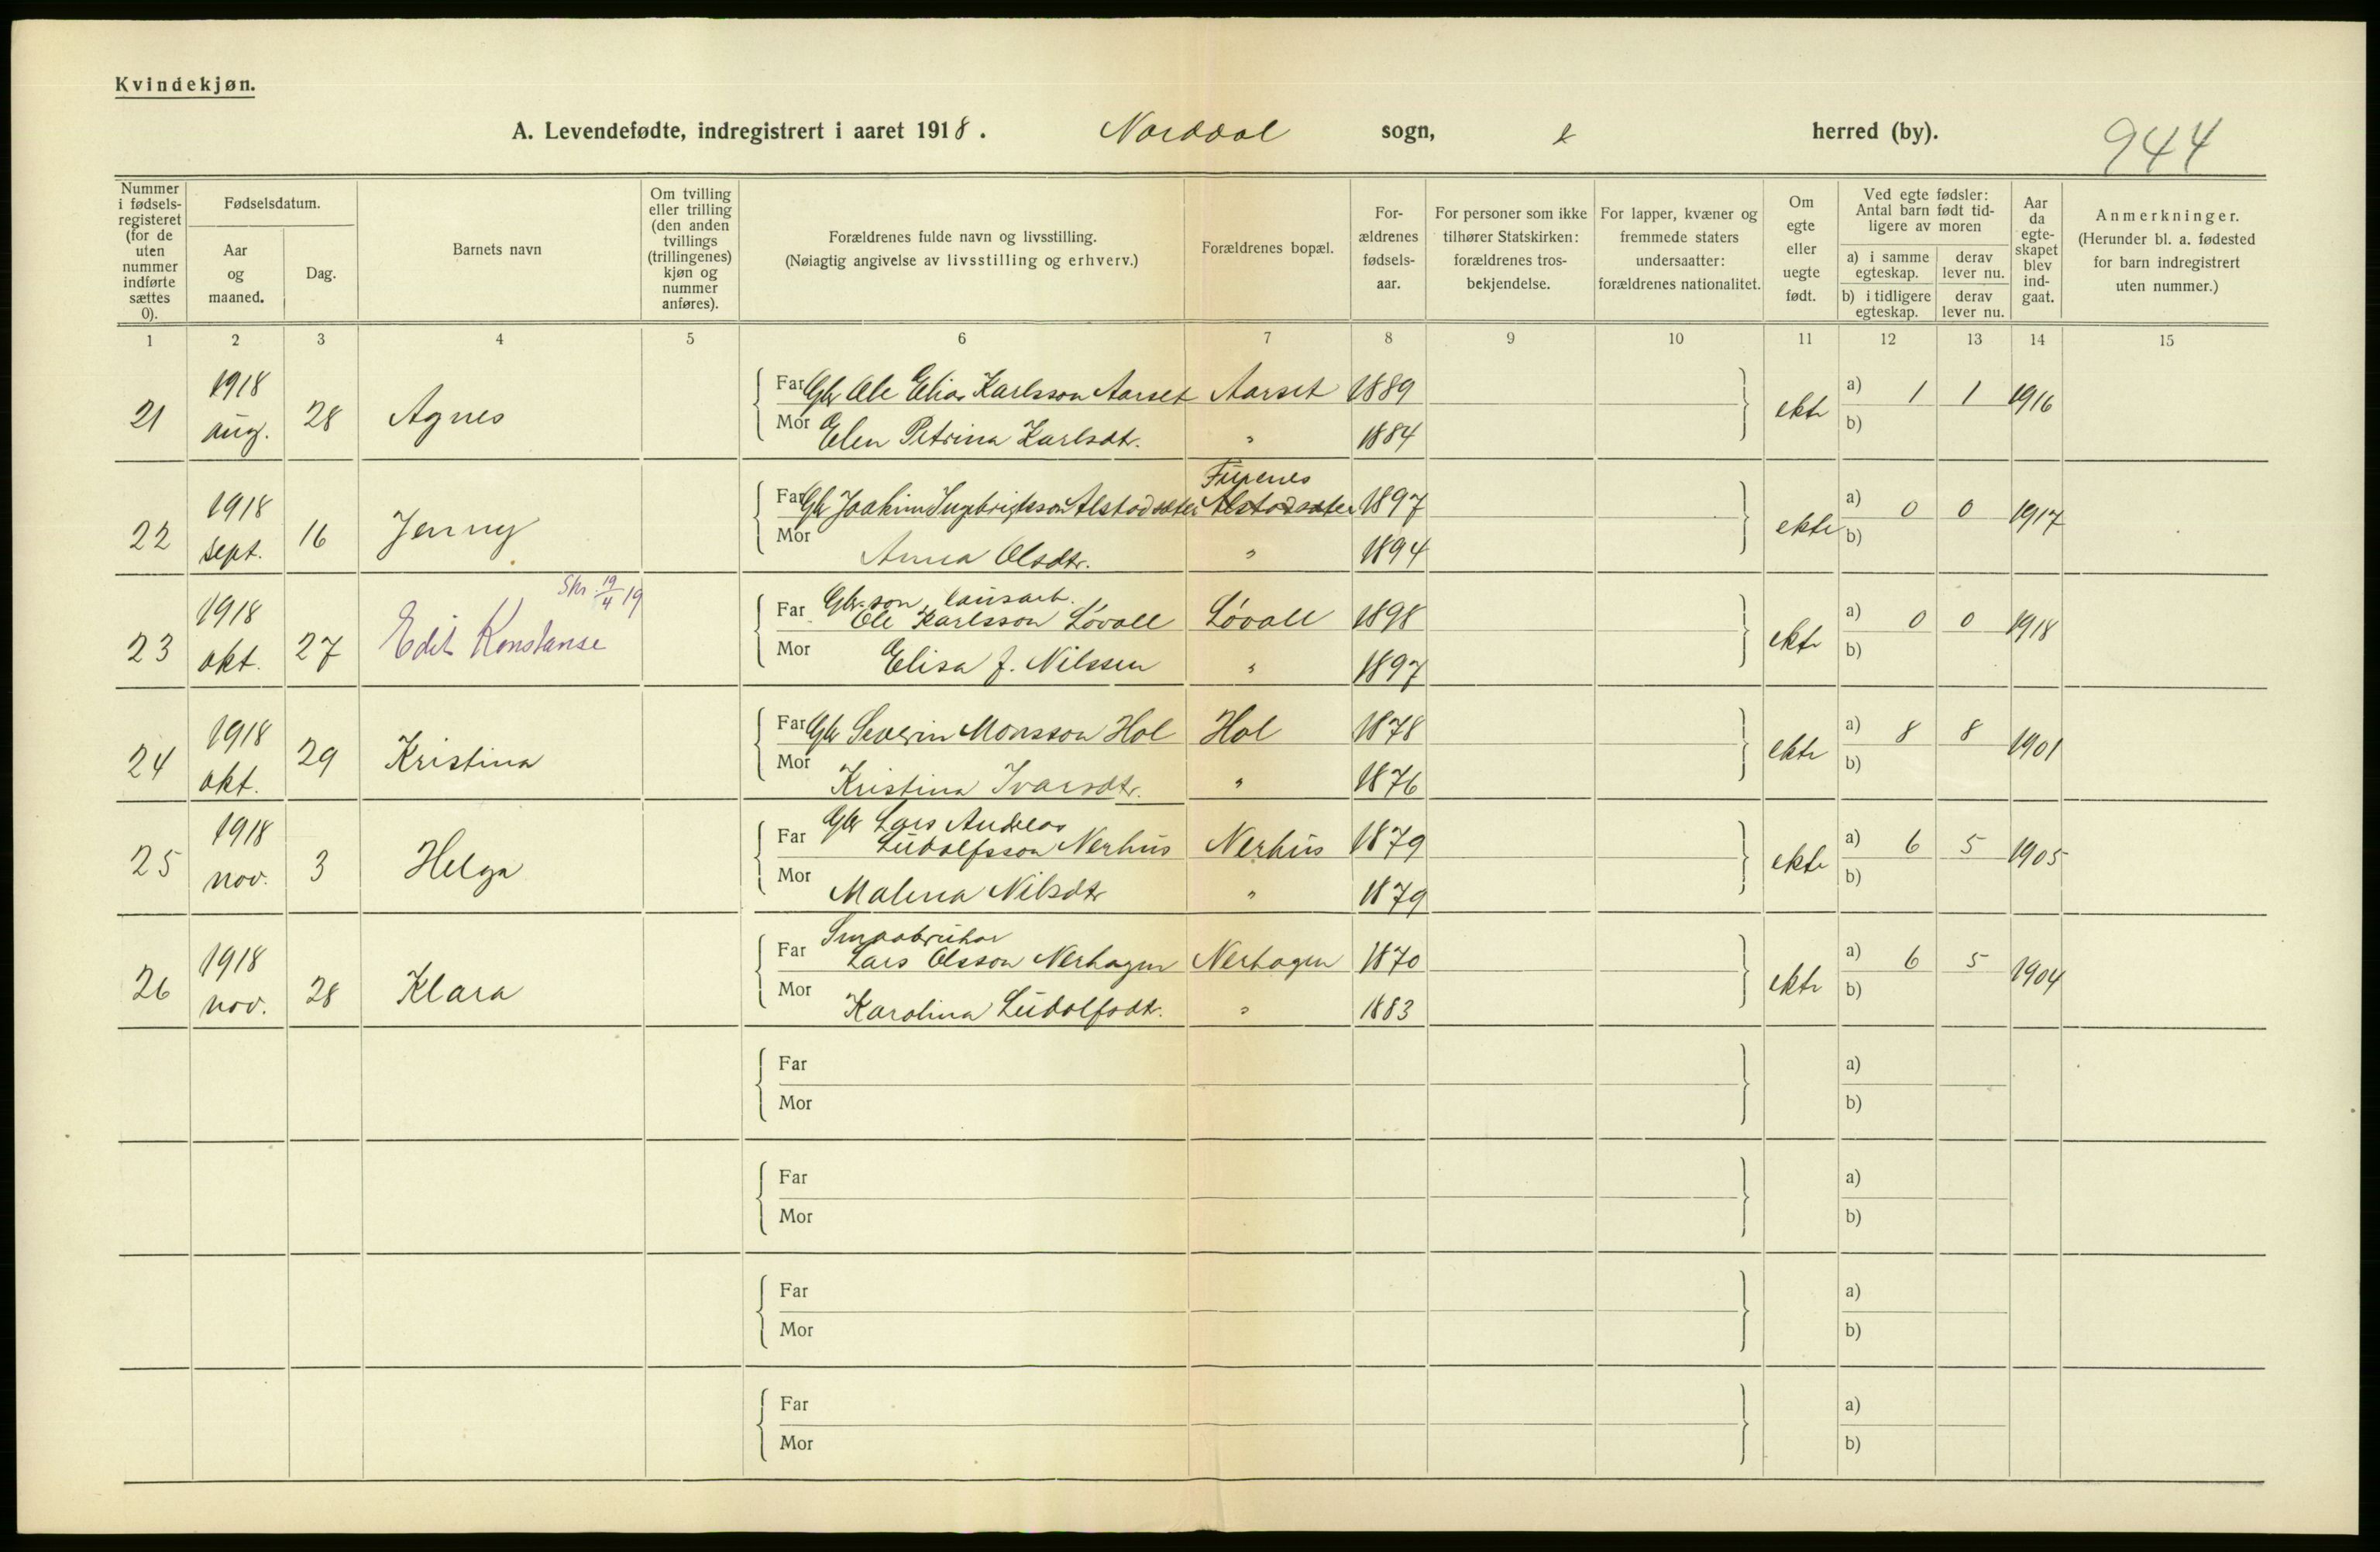 Kvindekjøn.
A. Levendefødte, indregistrert i aaret 1918. Norddal sogn, herred (by). 944
Nummer i fødsels-registeret (for de uten nummer indførte sættes 0).
Fødselsdatum.
Aar og maaned.
Dag.
Barnets navn
Om tvilling eller trilling (den anden tvillings (trillingenes) kjøn og nummer anføres).
Forældrenes fulde navn og livsstilling.
(Nøiagtig angivelse av livsstilling og erhverv.)
Forældrenes bopæl.
For-ældrenes fødsels-aar.
For personer som ikke tilhører Statskirken: forældrenes tros-bekjendelse.
For lapper, kvæner og fremmede staters undersaatter: forældrenes nationalitet.
Om egte eller uegte født.
Ved egte fødsler: Antal barn født tid-ligere av moren
a) i samme egteskap.
derav lever nu.
b) i tidligere egteskap.
derav lever nu.
Aar da egte-skapet blev ind-gaat.
Anmerkninger.
(Herunder bl. a. fødested for barn indregistrert uten nummer.)
1 2 3 4 5 6 7 8 9 10 11 12 13 14 15
21 1918 aug. 28 Agnes Far Gbr Ole Elias Karlsson Aarset Aarset 1889 ekte a) 1 1 1916
Mor Elen Petrina Karlsdtr. " 1884 b)
Furenes
22 1918 sept. 16 Jenny Far Gbr Joakim Ingebrigtsson Alstadsæter Alstadsæter 1897 ekte a) 0 0 1917
Mor Anna Olsdtr. " 1894 b)
Skr. 19/4 19
Gbr.son, lausarb.
23 1918 okt. 27 Edit Konstanse Far Ole Karlsson Løvoll Løvoll 1898 ekte a) 0 0 1918
Mor Elisa J. Nilssen " 1897 b)
24 1918 okt. 29 Kristina Far Gbr Severin Monsson Hol Hol 1878 ekte a) 8 8 1901
Mor Kristina Ivarsdtr. " 1876 b)
Gbr Lars Andreas
25 1918 nov. 3 Helga Far Ludolfsson Nerhus Nerhus 1879 ekte a) 6 5 1905
Mor Malena Nilsdtr " 1879 b)
Smaabrukar
26 1918 nov. 28 Klara Far Lars Olsson Nerhagen Nerhagen 1870 ekte a) 6 5 1904
Mor Karolina Ludolfsdtr. " 1883 b)
Far a)
Mor b)
Far a)
Mor b)
Far a)
Mor b)
Far a)
Mor b)